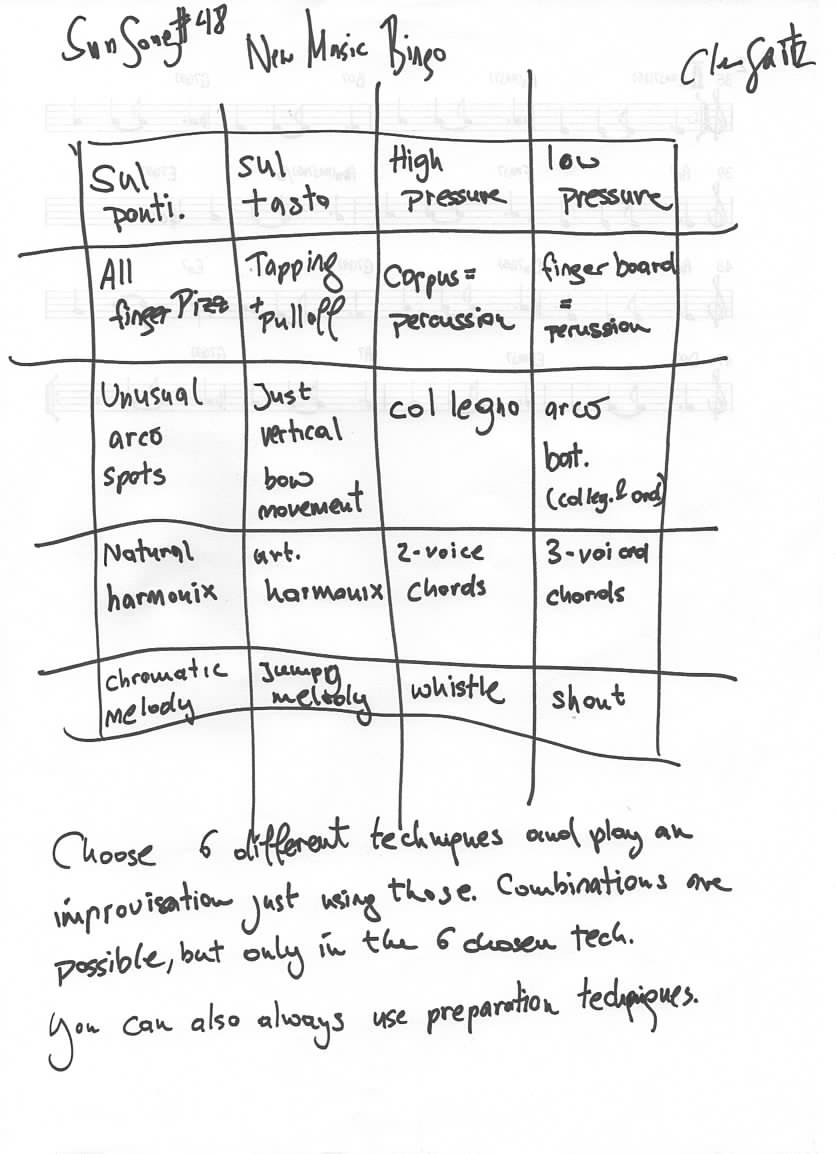 SunSong #48 New Music Bingo
Sul ponti.
sul tasto
High pressure
low pressure
All finger Pizz
Tapping + pulloff
Corpus = percussion
fingerboard = perussion
Unusual arco spots
Just vertical bow movement
col legno
arco bat. (col leg. & ord)
Natural harmonix
art. harmonix
2-voice chords
3-voi chords
chromatic melody
Jumpg melody
whistle
shout
Choose 6 different techniques and play an
improvisation just using those. Combinations are
possible, but only in the 6 chosen tech.
You can also always use preparation techniques.